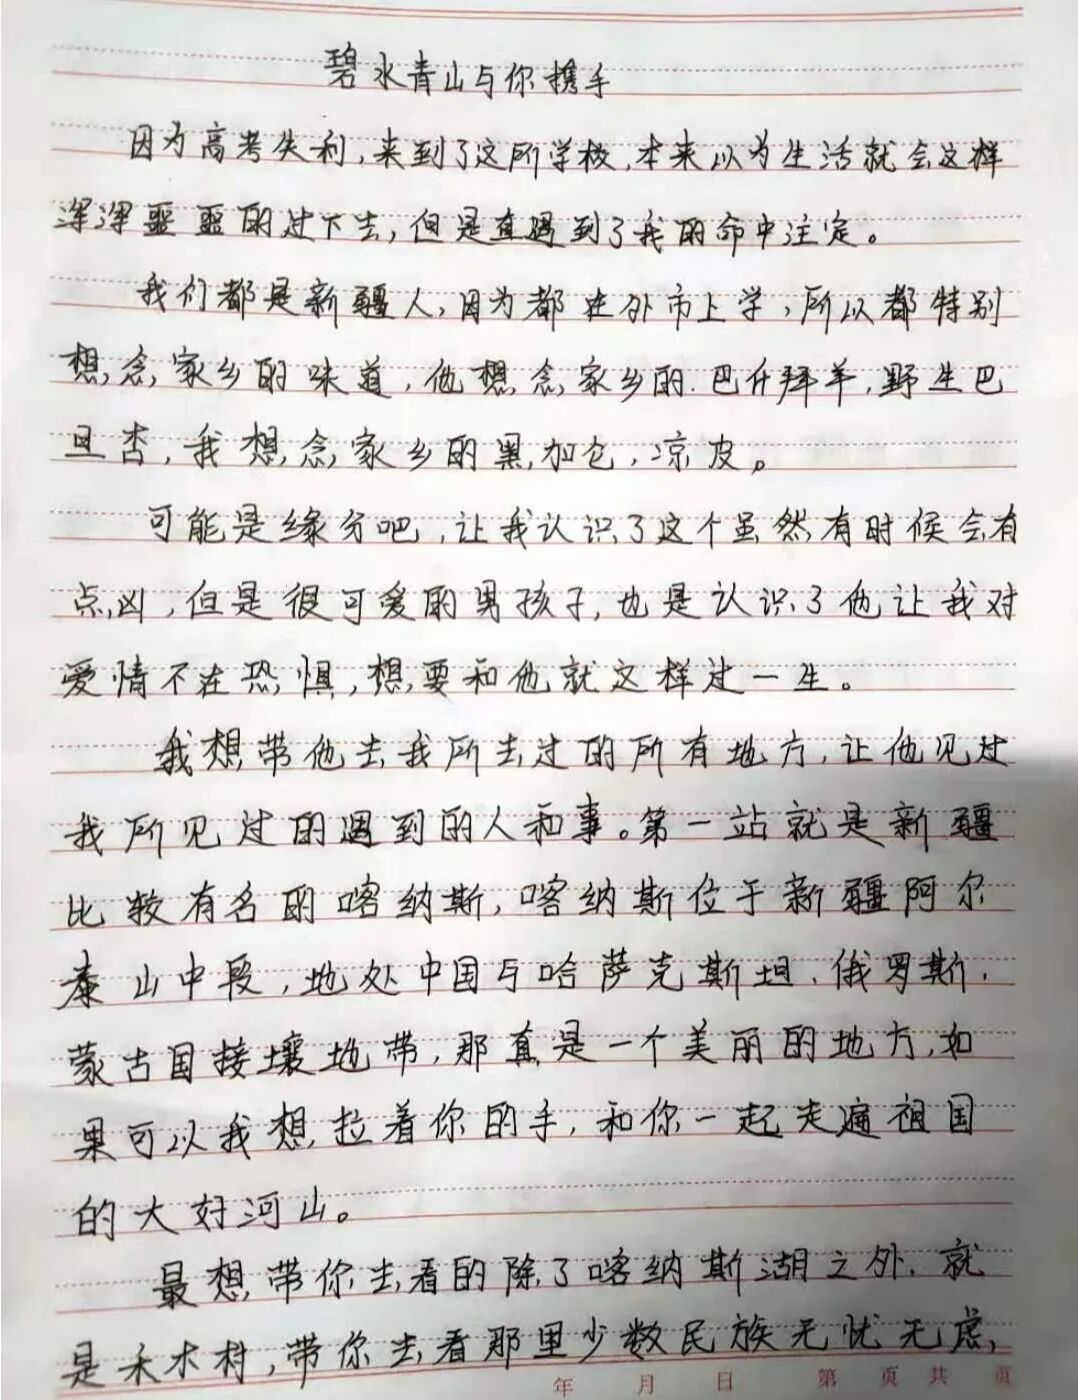 碧水青山与你携手
因为高考失利,来到了这所学校,本来以为生活就会这样
浑浑噩噩的过下去,但是直遇到了我的命中注定。
我们都是新疆人,因为都在外市上学,所以都特别
想念家乡的味道,他想念家乡的.巴什拜羊,野生巴
旦杏,我想念家乡的黑加仑,凉皮。
可能是缘分吧,让我认识了这个虽然有时候会有
点凶,但是很可爱的男孩子,也是认识了他让我对
爱情不在恐惧,想要和他就这样过一生。
我想带他去我所去过的所有地方,让他见过
我所见过的遇到的人和事。第一站就是新疆
比较有名的喀纳斯,喀纳斯位于新疆阿尔
泰山中段,地处中国与哈萨克斯坦、俄罗斯、
蒙古国接壤地带,那真是一个美丽的地方,如
果可以我想拉着你的手,和你一起走遍祖国
的大好河山。
最想带你去看的除了喀纳斯湖之外,就
是禾木村,带你去看那里少数民族无忧无虑,
年 月 日 第 页 共 页